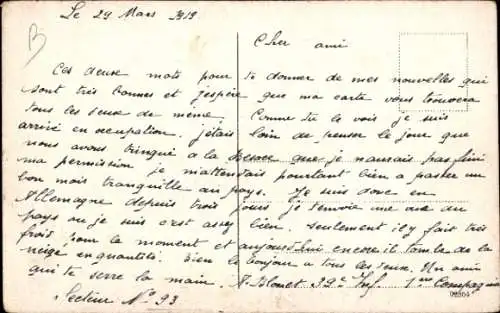 Le 29 Mars 1919
B
Cher ami
Ces deuse mots pour te donner de mes nouvelles qui
sont très bonnes et j'espère que ma carte vous trouvera
tous les deux de meme. Comme tu le vois je suis
arrivé en occupation. j'étais loin de penser le jour que
nous avons trinqué a la que je naurais pas fini
ma permission je m'attendais pourtant bien a passer un
bon mois tranquille au pays. Je suis donc en
Allemagne depuis trois jours je t'envoie une vue du
pays ou je suis c'est assez bien. Seulement il y fait très
froid pour le moment et aujourd'hui encore il tombe de la
neige en quantités. Bien le bonjour a tous les deuse. Un ami
qui te serre la main. Blouet 39e Inf. 1ere Compagnie
Secteur No 93